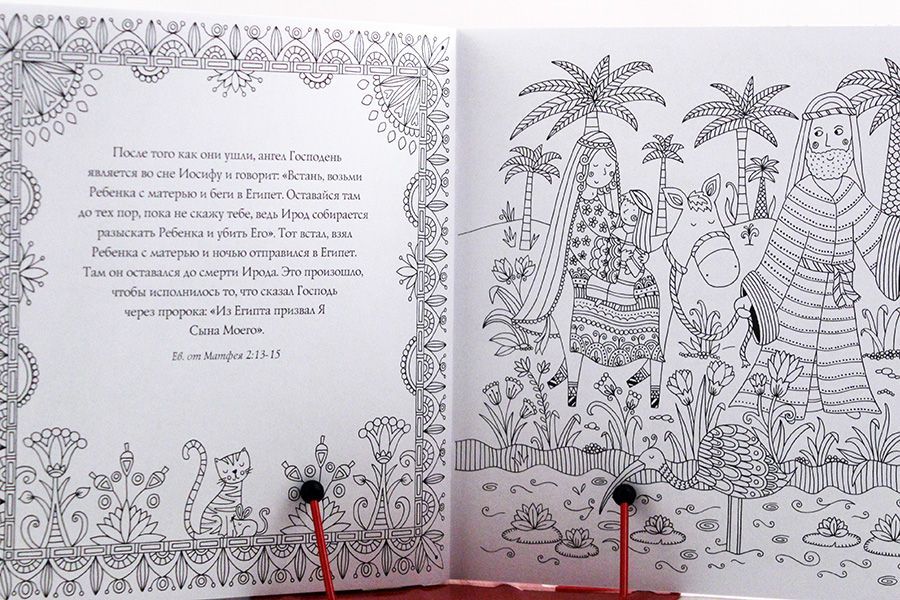 После того как они ушли, ангел Господень
является во сне Иосифу и говорит: «Встань, возьми
Ребенка с матерью и беги в Египет. Оставайся там
до тех пор, пока не скажу тебе, ведь Ирод собирается
разыскать Ребенка и убить Его». Тот встал, взял
Ребенка с матерью и ночью отправился в Египет.
Там он оставался до смерти Ирода. Это произошло,
чтобы исполнилось то, что сказал Господь
через пророка: «Из Египта призвал Я
Сына Моего».
Ев. от Матфея 2:13-15